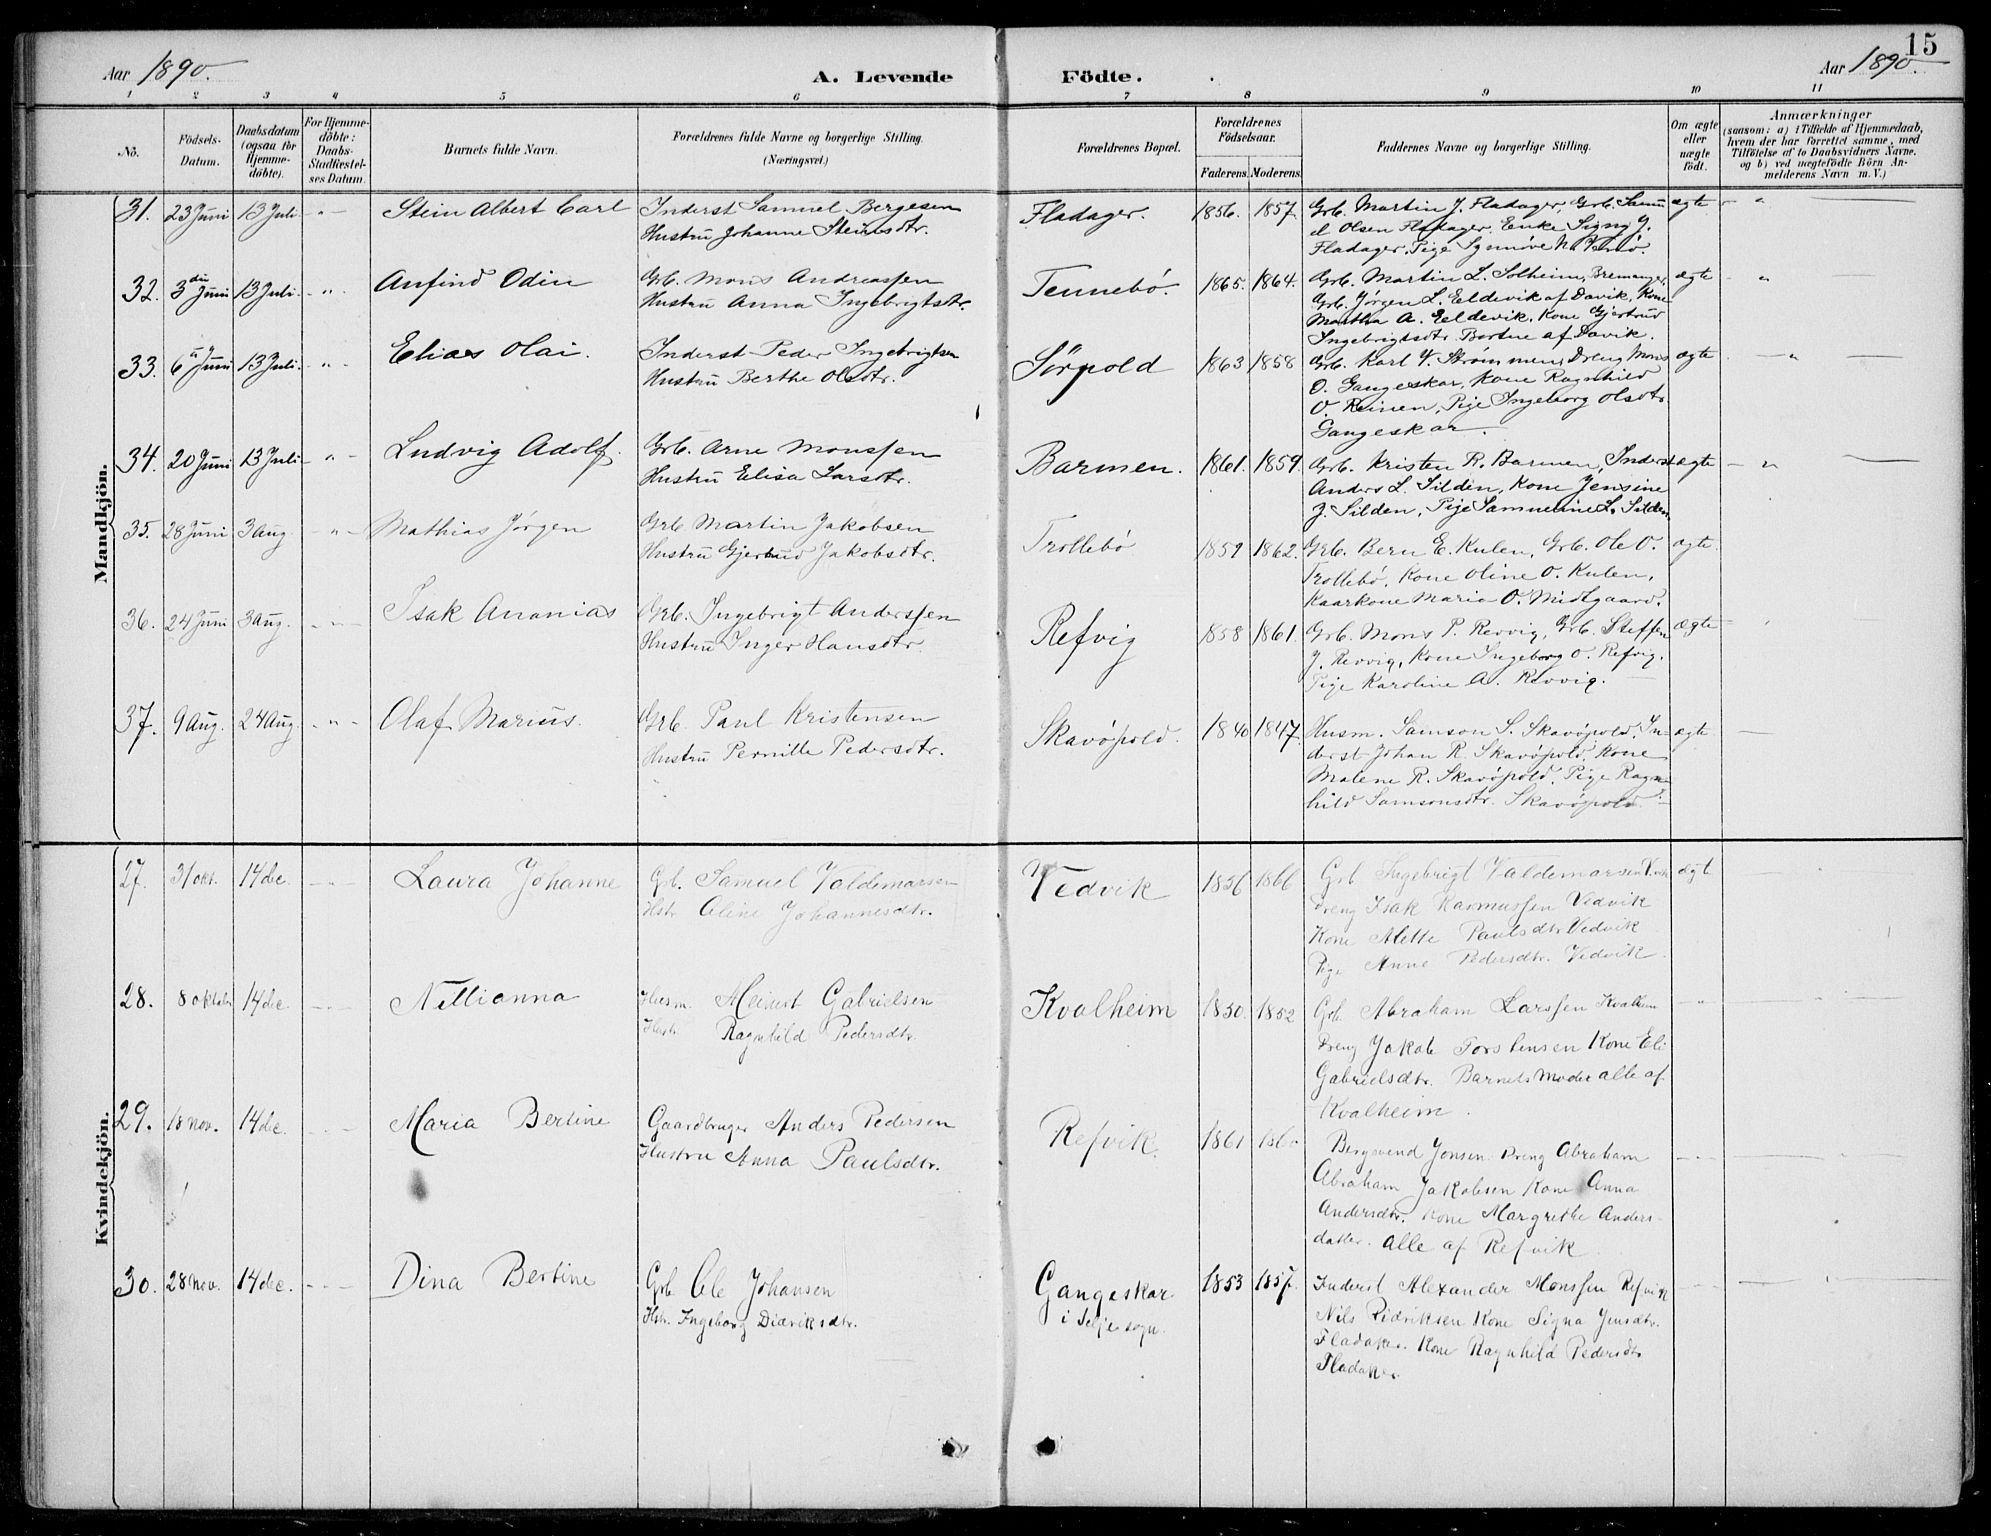 15
Aar 1890.
A. Levende Fødte.
Aar 1890.
1 2 3 4 5 6 7 8 9 10 11
No.
Fødsels-Datum.
Daabsdatum (ogsaa for Hjemme-døbte).
For Hjemme-døbte: Daabs-Stadfæstel-ses Datum.
Barnets fulde Navn.
Forældrenes fulde Navne og borgerlige Stilling.
(Næringsvei.)
Forældrenes Bopæl.
Forældrenes Fødselsaar.
Faderens. Moderens.
Faddernes Navne og borgerlige Stilling.
Om ægte eller uægte født.
Anmærkninger
(saasom: a) i Tilfælde af Hjemmedaab,
hvem der har forrettet samme, med
Tilføielse af to Daabsvidners Navne.
og b) ved uægtefødte Børn An-
melderens Navn m. V.)
Mandkjön.
31. 23 Juni 13 Juli - " - Stein Albert Carl Inderst Samuel Bergesen Fladager. 1856. 1857. Grb. Martin J. Fladager, Grb. Samu ægte - "
Hustru Johanne Steinsdtr. el Olsen Fladager, Enke Signy J.
Fladager, Pige Synnöve N.
32. 3die Juni 13 Juli - " - Anfind Odin Grb. Mons Andreassen Tennebö. 1865. 1864. Grb. Martin L. Solheim, Bremanger, ægte - "
Hustru Anna Ingebrigtsdtr. Grb. Jørgen L. Eeldevik af Davik, Kone
Martha A. Eeldevik, Kone Gjertrud
Ingebrigtsdtr. Bortne af Davik.
33. 6 Juni 13 Juli - " - Elias Olai. Inderst Peder Ingebrigtsen Sørpold 1863 1858 Grb. Karl V. Strømmen, Dreng Mons ægte - "
Hustru Berthe Olsdtr. O. Gangeskar, Kone Ragnhild
O. Reinen, Pige Ingeborg Olsdtr.
Gangeskar.
34. 20 Juni 13 Juli - " - Ludvig Adolf. Grb. Arne Monssen Barmen. 1861. 1859. Grb. Kristen R. Barmen, Inderst ægte - "
Hustru Elisa Larsdtr. Anders L. Silden, Kone Jensine
J. Silden, Pige Samueline L. Silden.
35. 28 Juni 3 Aug. - " - Mathias Jørgen Grb. Martin Jakobsen Trollebö 1859 1862. Grb. Bern E. Kulen, Grb. Ole O. ægte
Hustru Gjertrud Jakobsdtr. Trollebö, Kone Oline O. Kulen,
Kaarkone Maria O. Midtgaard.
36. 24 Juni 3 Aug. - " - Isak Ananias Grb. Ingebrigt Anderssen Refvig 1858 1861. Grb. Mons P. Revvig, Grb. Steffen ægte
Hustru Inger Hansdtr. J. Revvig, Kone Ingeborg O. Refvig.
Pige Karoline A. Revvig.
37. 9 Aug. 24 Aug. - " - Olaf Marius. Grb. Paul Kristensen Skavöpold. 1840 1847. Husm. Samson S. Skavöpold, In- ægte
Hustru Pernille Pedersdtr. derst Johan R. Skavöpold, Kone
Malene R. Skavöpold, Pige Ragn-
hild Samsonsdtr. Skavöpold.
Kvindekjön.
27. 31 okt. 14 dec. - " - Laura Johanne Grb. Samuel Valdemarsen Vedvik 1856 1866 Grb Ingebrigt Valdemarsen ægt
Hstr Oline Johannesdtr. Dreng Isak Rasmussen Vedvik
Kone Alette Paulsdtr Vedvik
Pige Anne Pedersdtr. Vedvik.
28. 8 oktober 14 dec - " - Nellianna Husm. Meinert Gabrielsen Kvalheim 1850. 1852 Grb. Abraham Larssen Kvalheim - " -
Hustr. Ragnhild Pedersdtr. Dreng Jakob Torstensen Kone Eli
Gabrielsdtr. Barnets Moder alle af
Kvalheim.
29. 18 nov. 14 dec. - Maria Bertine Gaardbruger Anders Pedersen Refvik. 1861 Bergsvend Jonsen. Dreng Abraham - " -
Hustru Anna Paulsdtr. Abraham Jakobsen Kone Anna
Andersdtr. Kone Margrethe Anders-
datter. alle af Refvik.
30. 28 nov. 14 dec. - Dina Bertine Grb Ole Johansen Gangeskar 1853 1857. Inderst Alexander Monssen Refvik
Hstr. Ingeborg Didriksdtr. i Selje sogn. Nils Didriksen Kone Signa Jensdtr.
Fladaker. Kone Ragnhild Pedersdtr
Fladaker